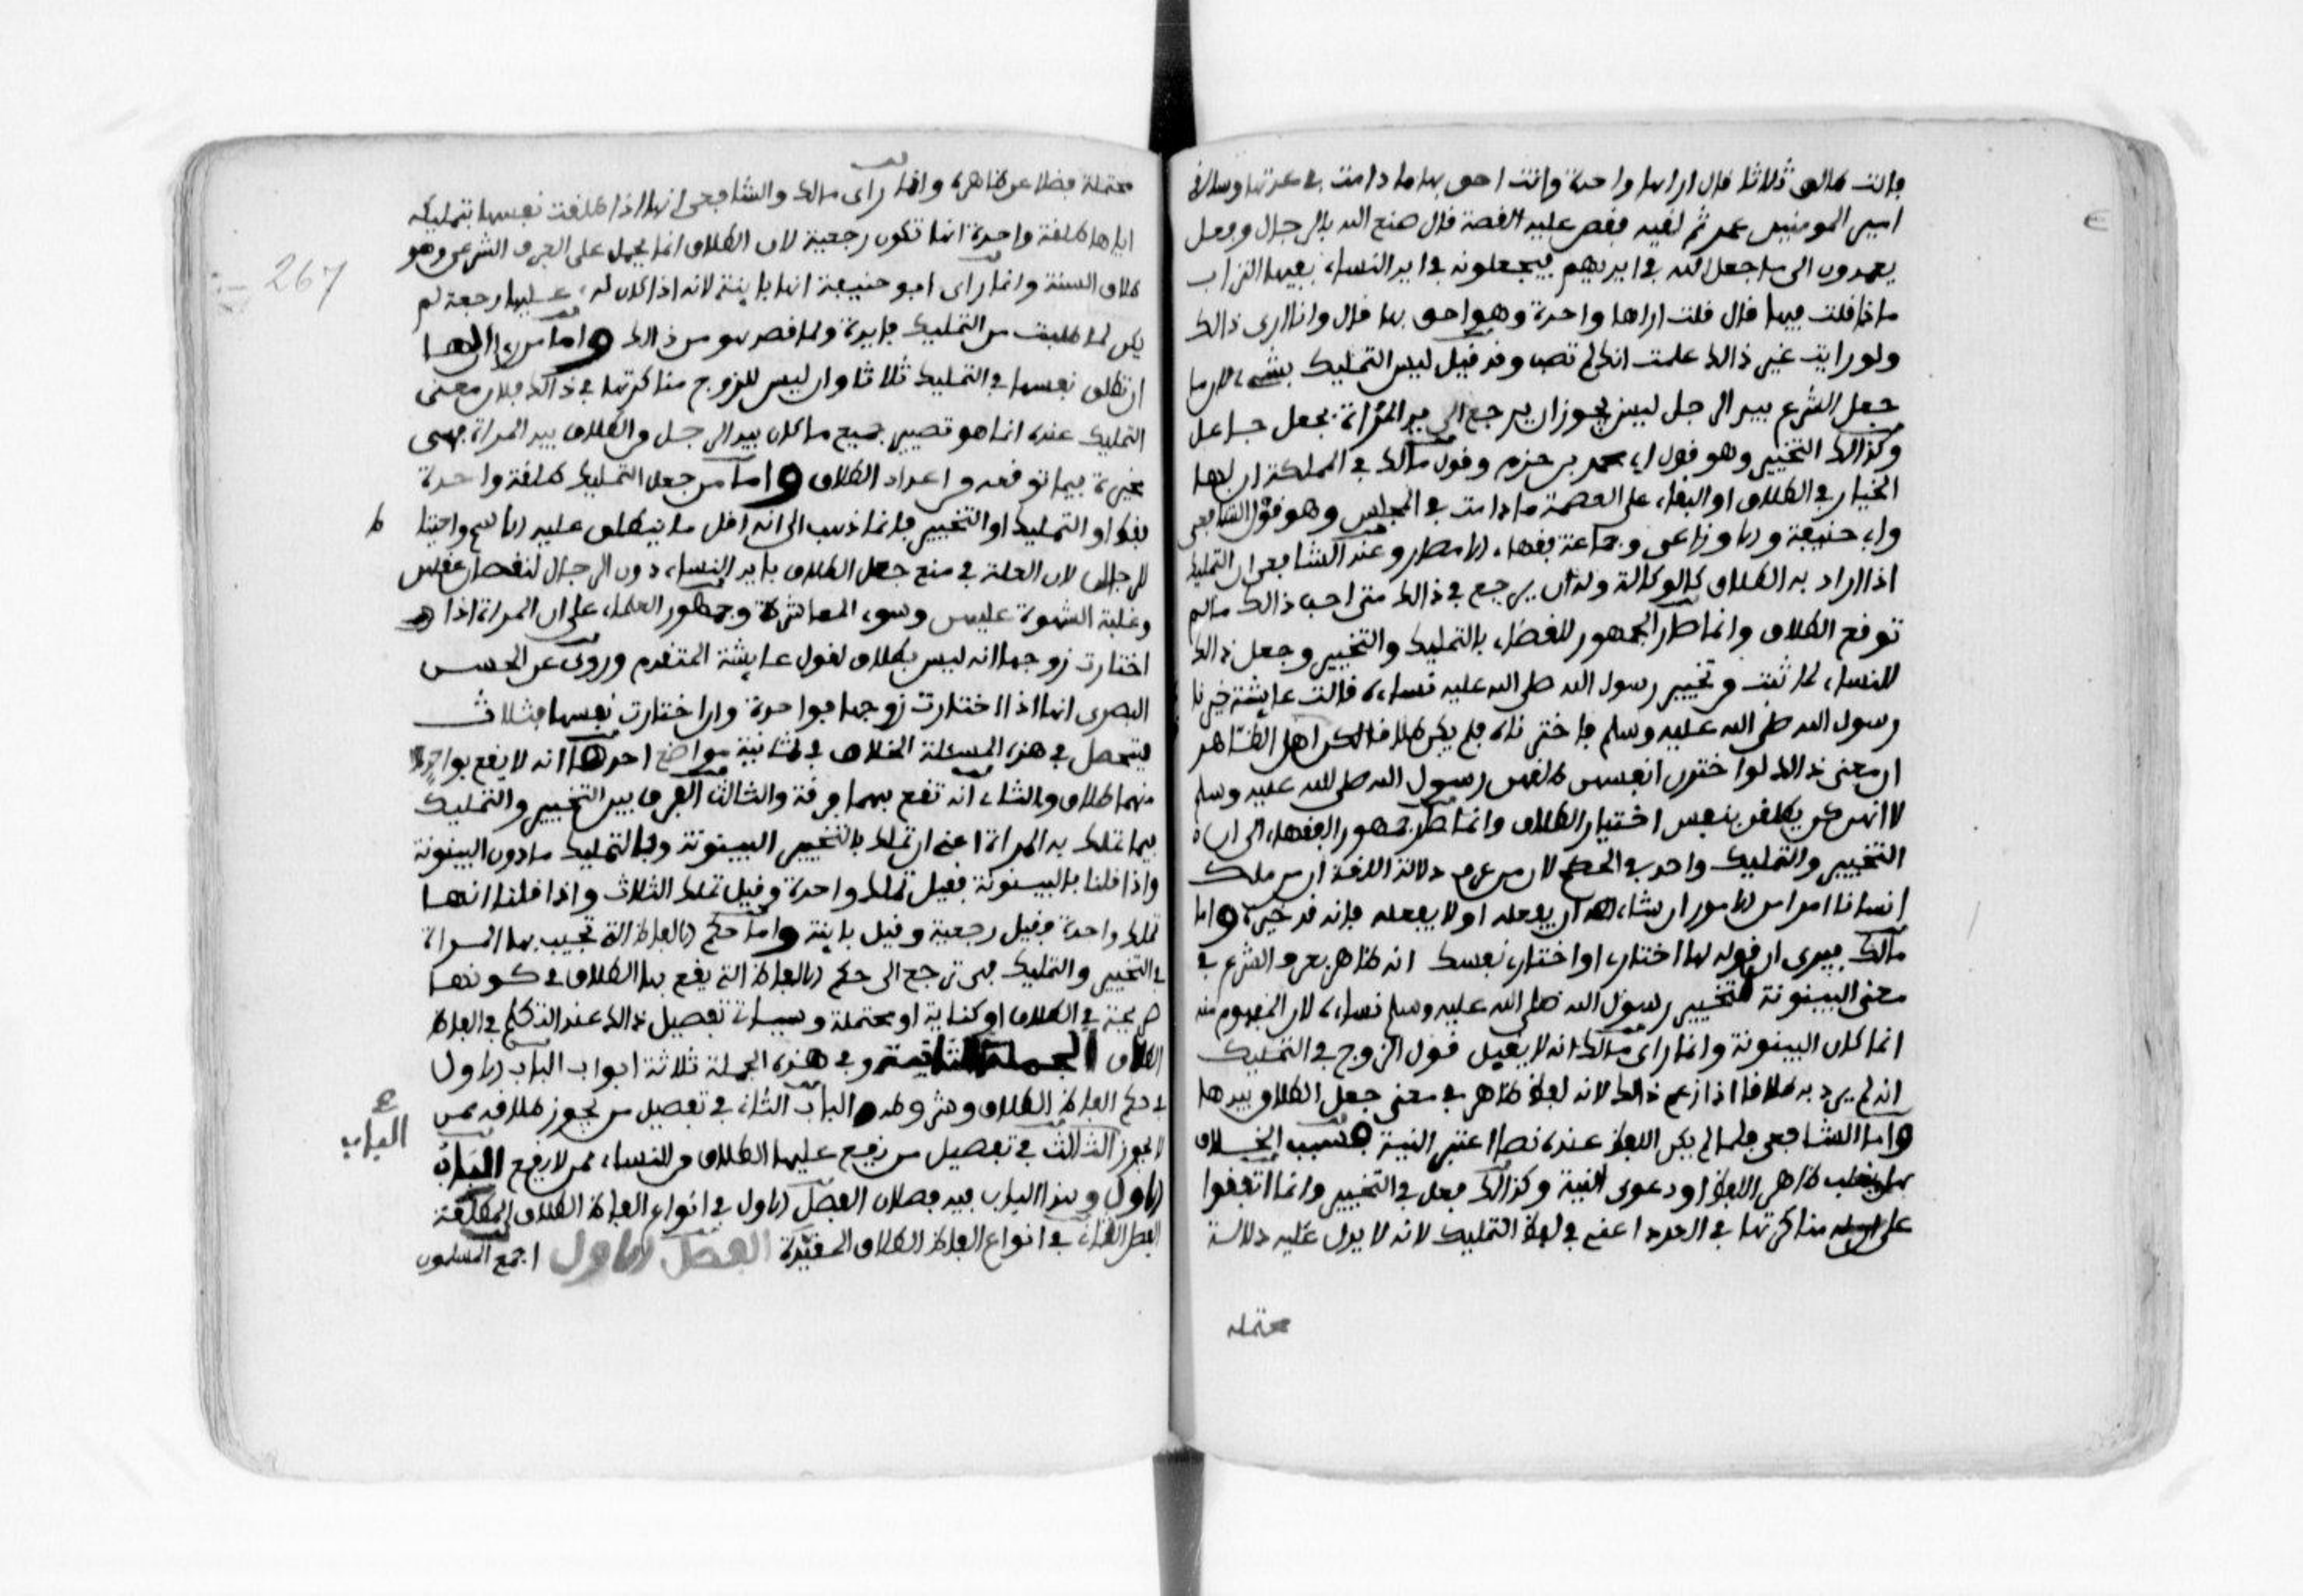 فانت طالق ثلاثا قال اراها واحدة وانت احق بها ما دامت في عدتها وسالقى
امير المومنين عمر ثم لقيه فقص عليه القصة قال صنع الله بالرجال وفعل
يعمدون الى ما جعل الله في ايديهم فيجعلونه في ايد النساء بفيها التراب
ماذا قلت فيها قال قلت اراها واحدة وهو احق بها قال وانا ارى ذالك
ولو رايت غير ذالك علمت انك لم تصب وقد قيل ليس التمليك بشيء لان ما
جعل الشرع بيد الرجل ليس يجوز ان يرجع الى يد المراة بجعل جاعل
وكذالك التخيير وهو قول ابي محمد بن حزم وقول مالك في المملكة ان لها
الخيار في الطلاق او البقاء على العصمة ما دامت في المجلس وهو قول الشافعي
وابي حنيفة والاوزاعي وجماعة فقهاء الامصار وعند الشافعي ان التمليك
اذا اراد به الطلاق كالوكالة وله ان يرجع في ذالك متى احب ذالك ما لم
توقع الطلاق وانما صار الجمهور للقضاء بالتمليك والتخيير وجعل ذالك
للنساء لما ثبت من تخيير رسول الله صلى الله عليه نساءه قالت عايشة خيرنا
رسول الله صلى الله عليه وسلم فاخترناه فلم يكن طلاقا لكن اهل الظاهر
ان معنى ذالك لو اخترن انفسهن طلقهن رسول الله صلى الله عليه وسلم
لا انهن كن يطلقن بنفس اختيار الطلاق وانما صار جمهور الفقهاء الى ان
التخيير والتمليك واحد في الحكم لان من عرف دلالة اللغة ان من ملك
انسانا امرا من الامور ان شاء ان يفعله او لا يفعله فانه قد خيره واما
مالك فيرى ان قوله لها اختاريني او اختاري نفسك انه ظاهر بعرف الشرع في
معنى البينونة بتخيير رسول الله صلى الله عليه وسلم نساءه لان المفهوم منه
انما كان البينونة وانما راى مالك انه لا يقبل قول الزوج في التمليك
انه لم يرد به طلاقا اذا زعم ذالك لانه لفظ ظاهر في معنى جعل الطلاق بيدها
واما الشافعي فلما لم يكن اللفظ عنده نصا اعتبر النية فسبب الخلاف
هل يغلب ظاهر اللفظ او دعوى النية وكذالك فعل في التخيير وانما اتفقوا
على ان له مناكرتها في العدد اعني في لفظ التمليك لانه لا يدل عليه دلالة
محتملة
محتملة فضلا عن ظاهره وانما راى مالك والشافعي انها اذا طلقت نفسها بتمليكه
اياها طلقة واحدة انها تكون رجعية لان الطلاق انما يحمل على العرف الشرعي وهو
طلاق السنة وانما راى ابو حنيفة انها باينة لانه اذا كان له عليها رجعة لم
يكن لما طلبت من التمليك فايدة ولما قصد هو من ذالك واما من راى لها
ان تطلق نفسها في التمليك ثلاثا وان ليس للزوج مناكرتها في ذالك فلان معنى
التمليك عنده انما هو تصيير جميع ما كان بيد الرجل من الطلاق بيد المراة فهي
مخيرة فيما توقعه من اعداد الطلاق واما من جعل التمليك طلقة واحدة
فقط او التمليك او التخيير فانما ذهب الى انه اقل ما ينطلق عليه الاسم واحتياطا
للرجال لان العلة في منع جعل الطلاق بايد النساء دون الرجال لنقصان عقلهن
وغلبة الشهوة عليهن وسوء المعاشرة وجمهور العلماء على ان المراة اذا
اختارت زوجها انه ليس بطلاق لقول عايشة المتقدم وروى عن الحسن
البصري انها اذا اختارت زوجها فواحدة وان اختارت نفسها فثلاث
فيتحصل في هذه المسئلة الخلاف في ثمانية مواضع احدها انه لا يقع بواحد
منهما طلاق والثاني انه تقع بهما فرقة والثالث الفرق بين التخيير والتمليك
فيما تملك به المراة اعني ان تملك بالتخيير البينونة وبالتمليك ما دون البينونة
واذا قلنا بالبينونة فقيل تملك واحدة وقيل تملك الثلاث واذا قلنا انها
تملك واحدة فقيل رجعية وقيل باينة واما حكم الالفاظ التي تجيب بها المراة
في التخيير والتمليك فهي ترجع الى حكم الالفاظ التي يقع بها الطلاق في كونها
صريحة في الطلاق او كناية او محتملة وسياتي تفصيل ذالك عند التكلم في الفاظ
الطلاق الجملة الثانية وفي هذه الجملة ثلاثة ابواب الباب الاول
في حكم الفاظ الطلاق وشروطه والباب الثاني في تفصيل من يجوز طلاقه ممن
لا يجوز الثالث في تفصيل من يقع عليها الطلاق من النساء ممن لا يقع الباب
الباب
الاول وهذا الباب فيه فصلان الفصل الاول في انواع الفاظ الطلاق المطلقة
الفصل الثاني في انواع الفاظ الطلاق المقيدة الفصل الاول اجمع المسلمون
267